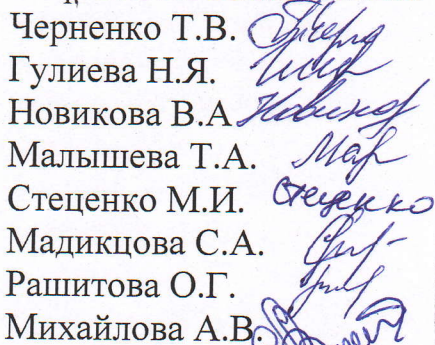 Черненко Т.В.
Гулиева Н.Я.
Новикова В.А
Малышева Т.А.
Стеценко М.И. Стеценко
Мадикцова С.А.
Рашитова О.Г.
Михайлова А.В.